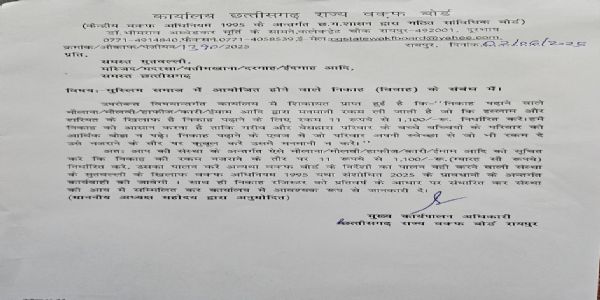 कार्यालय छत्तीसगढ़ राज्य वक्फ बोर्ड
(केन्द्रीय वक्फ अधिनियम 1995 के अन्तर्गत छ.ग.शासन द्वारा गठित सांविधिक बोर्ड)
डॉ.भीमराव अम्बेडकर मूर्ति के सामने,कलेक्ट्रेट चौक रायपुर-492001, दूरभाष
0771-4914840,फैक्स नं.0771-4058539,ई-मेल:cgstatewakfboard@yahoo.com,
क्रमांक/औकाफ/पंजीयन/1390/2025 रायपुर, दिनांक 02/06/2025
प्रति,
समस्त मुतवल्ली,
मस्जिद/मदरसा/यतीमखाना/दरगाह/ईदगाह आदि,
समस्त छत्तीसगढ़
विषय:-मुस्लिम समाज में आयोजित होने वाले निकाह (विवाह) के संबंध में।
उपरोक्त विषयान्तर्गत कार्यालय में शिकायत प्राप्त हुई है कि:-"निकाह पढ़ाने वाले
मौलाना/मौलवी/हाफीज/कारी/ईमाम आदि द्वारा मनमानी रकम ली जाती है जो कि इस्लाम और
शरियत के खिलाफ है निकाह पढ़ाने के लिए रकम 11 रूपये से 1,100/-रू. निर्धारित करें।हमें
निकाह को आसान करना है ताकि गरीब और बेसहारा परिवार के बच्चे बच्चियों के परिवार को
आर्थिक बोझ न पड़े। निकाह पढ़ाने के एवज में जो परिवार अपनी स्वेच्छा से जो भी रकम दे
उसे नजराने के तौर पर कुबूल करें उसमें मनमानी न करें।"
अतः आप की संस्था के अन्तर्गत ऐसे मौलाना/मौलवी/हाफीज/कारी/ईमाम आदि को सूचित
करें कि निकाह की रकम नजराने के तौर पर 11 रूपये से 1,100/-रू.(ग्यारह सौ रूपये)
निर्धारित करें, उसका पालन करें अन्यथा वक्फ बोर्ड के निर्देशों का पालन नहीं करने वाली संस्था
के मुतवल्ली के खिलाफ वक्फ अधिनियम 1995 यथा संशोधित 2025 के प्रावधानों के अन्तर्गत
कार्यवाही की जावेगी । साथ ही निकाह रजिस्टर को प्रतिवर्ष के आधार पर संधारित कर संस्था
की आय में सम्मिलित कर कार्यालय में आवश्यक रूप से जानकारी दें।
(माननीय अध्यक्ष महोदय द्वारा अनुमोदित)
मुख्य कार्यपालन अधिकारी
छत्तीसगढ़ राज्य वक्फ बोर्ड रायपुर